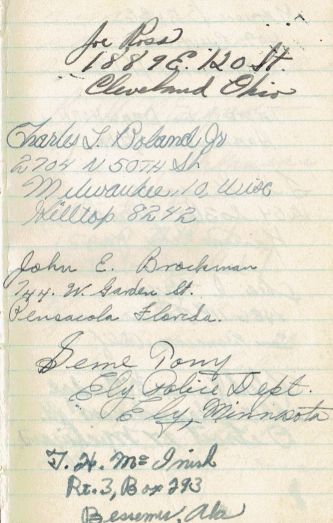 Joe Ross
1889 E. 120 St.
Cleveland Ohio
Charles L. Boland Jr
2704 N 50TH St
Milwaukee 10, Wisc
Hilltop 8242
John E. Brockman
744 W. Garden St.
Pensacola Florida.
Tony
Ely Police Dept.
Ely, Minnesota
T. H. McInish
Rt. 3, Box 293
Bessemer, Ala